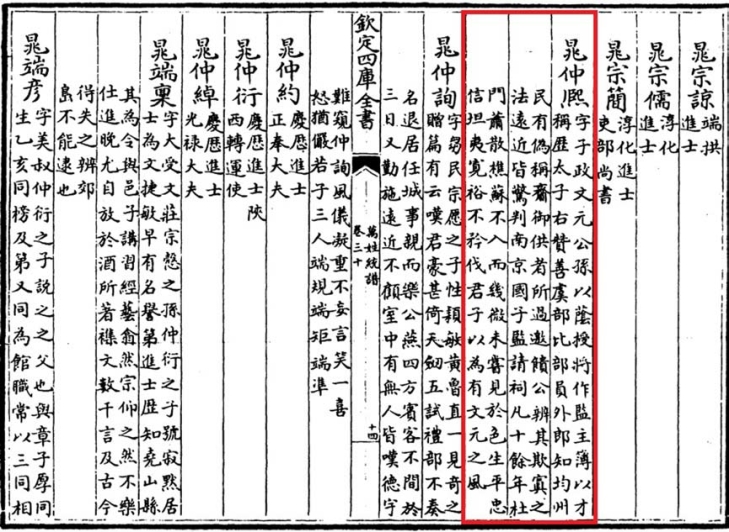 晁宗諒 端拱
進士
晁宗儒 淳化
進士
晁宗簡 淳化進士
吏部尚書
晁仲熈 字子政文元公孫以蔭授將作監主簿以才
稱歷太子右贊善虞部比部員外郎知均州
民有偽稱齋御供者所過邀饋公辨其欺寘之
法遠近皆驚判南京國子監請祠凡十餘年杜
門蕭散樵蘇不入而幾微未嘗見於色生平忠
信坦夷寬裕不矜伐君子以為有文元之風
晁仲詢 字芻民宗愿之子性穎敏黃魯直一見奇之
贈篇有云嘆君豪甚倚天劒五試禮部不奏
名退居任城事親而樂公燕四方賓客不間於
三日又勤施遠近不顧室中有無人皆嘆德宇
欽定四庫全書
萬姓統譜
卷三十
十四
難窺仲詢風儀凝重不妄言笑一喜
怒猶儼若子三人端規端矩端準
晁仲約 慶歷進士
正奉大夫
晁仲衍 慶歷進士陝
西轉運使
晁仲綽 慶歷進士
光祿大夫
晁端稟 字大受文莊宗愨之孫仲衍之子號寂默居
士為文捷敏早有名譽第進士歷知堯山縣
其為令與邑子講習經藝翕然宗仰之然不樂
仕進晚尤自放於酒所著襍文數千言及古今
得失之辨郊
島不能逮也
晁端彥 字美叔仲衍之子説之之父也與章子厚同
生乙亥同榜及第又同為館職常以三同相